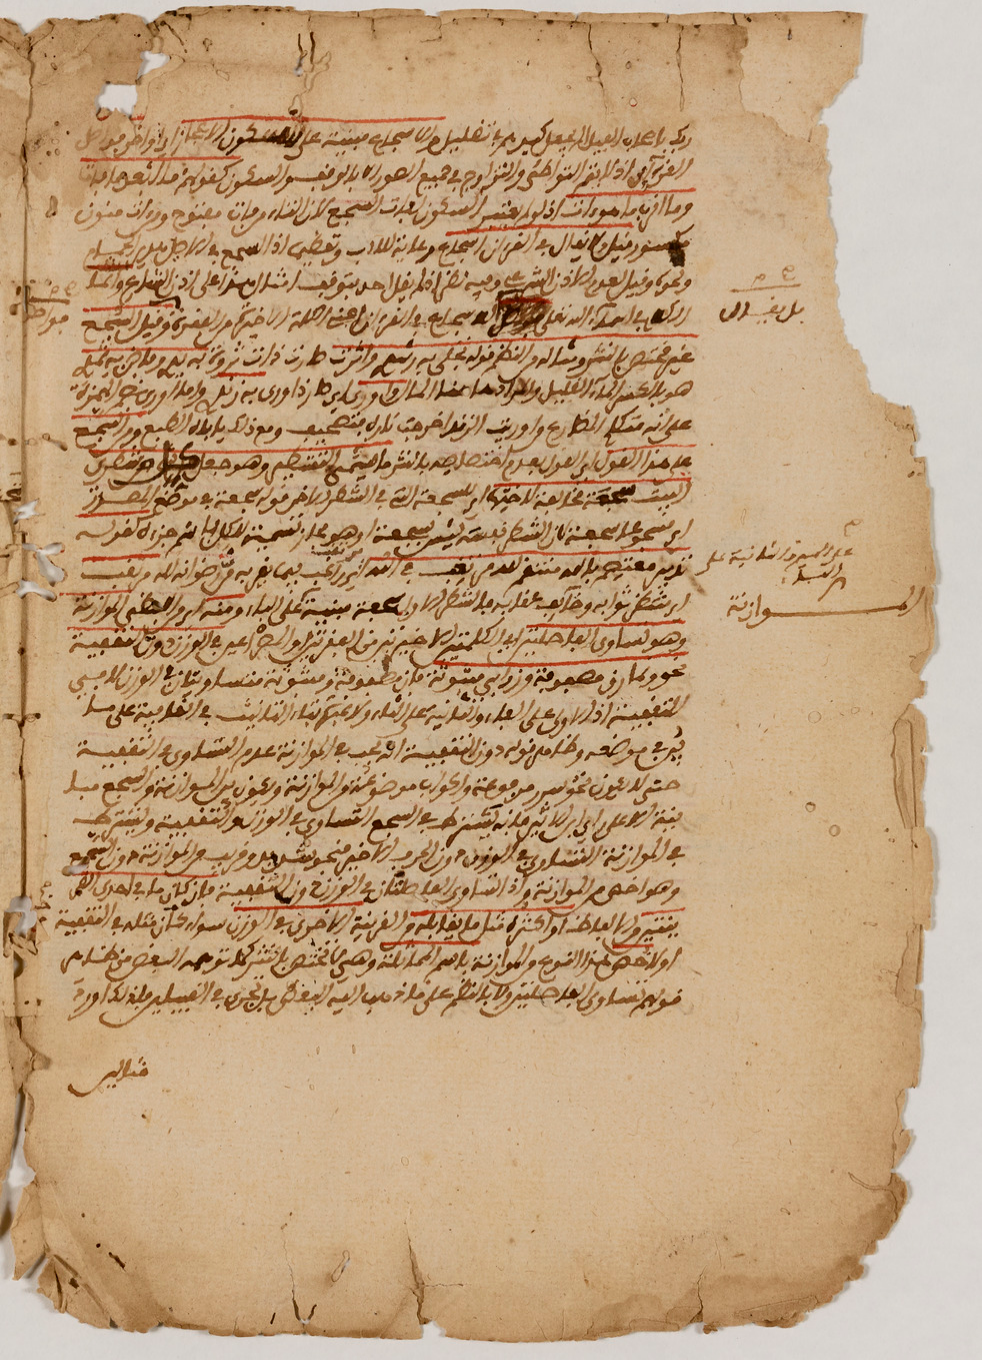 والاسجاع مبنية على سكون الاعجاز اي اواخر فواصل
القرائن اذ لا يتم التواطئ والتزاوج في جميع الصور الا بالوقف والسكون كقولهم ما ابعد ما فات
وما اقرب ما هو ات اذ لو لم يعتبر السكون لفات السجع لان التاء من فات مفتوح ومن ات منون
مكسور قيل ولا يقال في القران اسجاع رعاية للادب وتعظيما اذ السجع في الاصل هدير الحمام
ونحوه وقيل لعدم الاذن الشرعي وفيه نظر اذ لم يقل احد بتوقف امثال هذا على اذن الشارع وانما
الكلام في اسماء الله تعالى الاسجاع في القران اعني الكلمة الاخيرة من الفقرة وقيل السجع
بل يقال
غير مختص بالنثر ومثاله من النظم قوله تجلى به رشدي واثرت صارت ذات ثروة به يدي وفاض به ثمدي
هو بالكسر الماء القليل والمراد هنا المال واورى اي صار ذا ورى به زندي واما اورى بضم الهمزة
على انه متكلم المضارع من اوريت الزند اخرجت ناره فتصحيف ومع ذلك ياباه الطبع ومن السجع
على هذا القول اي القول بعدم اختصاصه بالنثر ما يسمى التشطير وهو جعل كل من شطري
البيت سجعة مخالفة لاختها اي للسجعة التي في الشطر الاخر فقوله سجعة في موضع المصدر
اي مسجوعا سجعة لان الشطر نفسه ليس بسجعة او هو مجاز تسمية للكل باسم جزءه كقوله
تدبير معتصم بالله منتقم لله مرتغب في الله اي راغب فيما يقربه من رضوانه لله مرتقب
اي منتظر ثوابه وخائف عقابه فالشطر الاول سجعة مبنية على الميم والثانية على الباء ومنه اي من اللفظي الموازنة
الموازنة
وهو تساوي الفاصلتين اي الكلمتين الاخيرتين من الفقرتين او المصراعين في الوزن دون التقفية
نحو ونمارق مصفوفة وزرابي مبثوثة فان مصفوفة ومبثوثة متساويتان في الوزن لا في
التقفية اذ الاولى على الفاء والثانية على الثاء ولا عبرة بتاء التانيث في القافية على ما
بين في موضعه وظاهر قوله دون التقفية انه يجب في الموازنة عدم التساوي في التقفية
حتى لا يكون نحو سرر مرفوعة واكواب موضوعة من الموازنة ويكون بين الموازنة والسجع مبا
ينة الا على راي ابن الاثير فانه يشترط في السجع التساوي في الوزن والتقفية ويشترط
في الموازنة التساوي في الوزن دون الحرف الاخير فنحو شديد وقريب من الموازنة دون السجع
وهو اخص من الموازنة واذا تساوى الفاصلتان في الوزن دون التقفية فان كان ما في احدى القر
ينتين من الالفاظ او اكثره مثل ما يقابله من القرينة الاخرى في الوزن سواء كان مثله في التقفية
او لا خص هذا النوع من الموازنة باسم المماثلة وهي لا تختص بالنثر كما توهمه البعض من ظاهر
قولهم تساوي الفاصلتين ولا بالنظم على ما ذهب اليه البعض بل تجري في القبيلين فلذلك اورد
مثالين